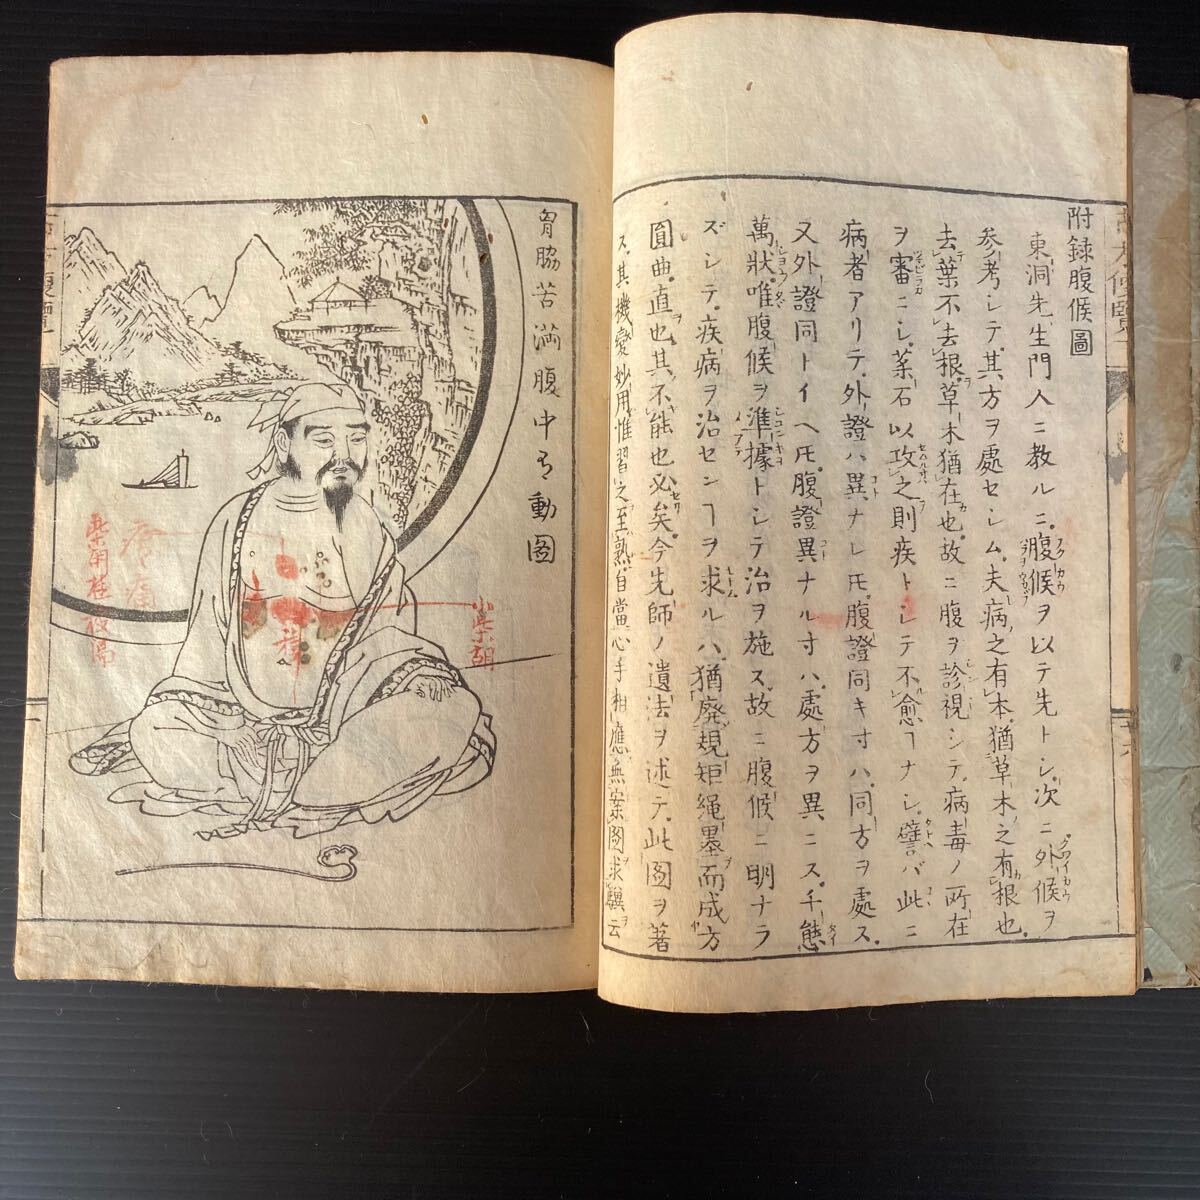 附録腹候圖
東洞先生門人ニ教ルニ腹候ヲ以テ先トシ次ニ外候ヲ
参考シテ其方ヲ處セシム夫病之有本猶草木之有根也
去葉不去根草木猶在也故ニ腹ヲ診視シテ病毒ノ所在
ヲ審ニシ薬石以攻之則疾トシテ不愈ヿナシ譬バ此ニ
病者アリテ外證ハ異ナレ𪜈腹證同キ寸ハ同方ヲ處ス
又外證同トイヘ𪜈腹證異ナル寸ハ處方ヲ異ニス千態
萬狀唯腹候ヲ準據トシテ治ヲ施ス故ニ腹候ニ明ナラ
ズシテ疾病ヲ治センヿヲ求ルハ猶廢規矩繩墨而成方
圓曲直也其不能也必矣今先師ノ遺法ヲ述テ此图ヲ著
ス其機變妙用惟習之至熟自當心手相應無案图求驥云
胷脇苦満腹中有動图
小柴胡
柴胡桂枝湯